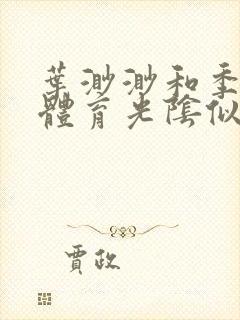 葉渺渺和季
體育光陰似
賈政